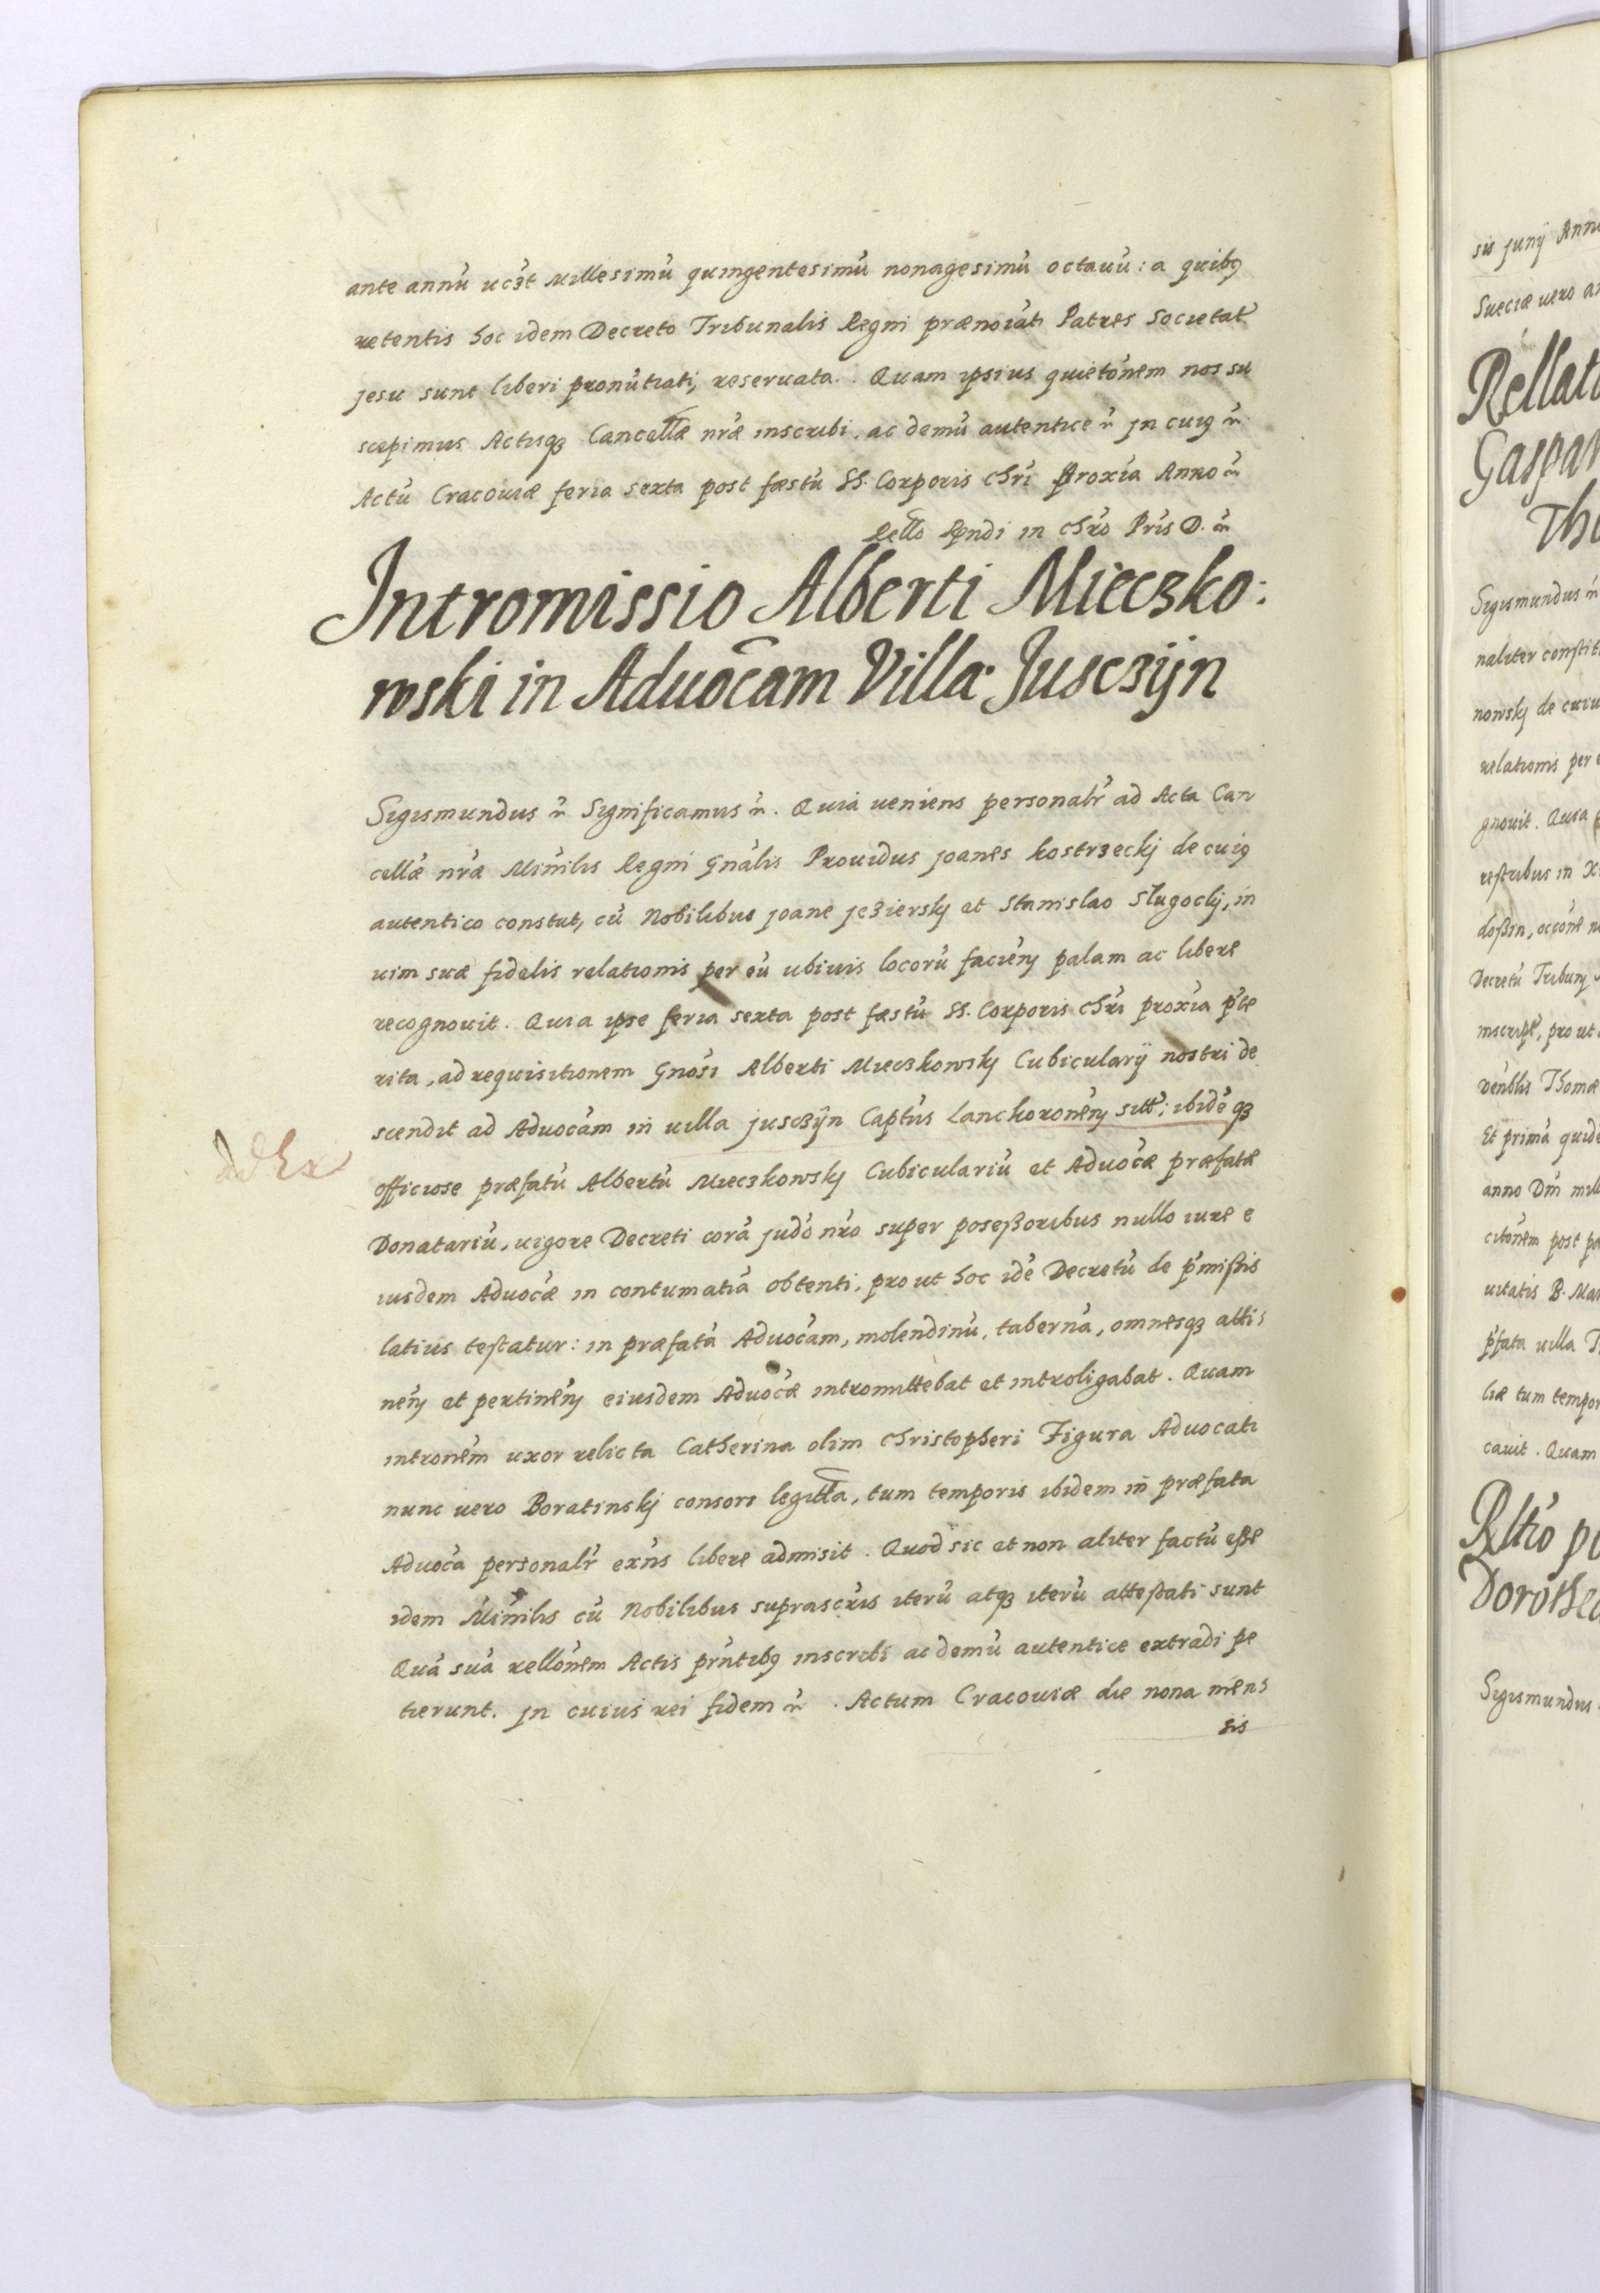 ante annu̓ uc3t Millesimu̓ quingentesimu̓ nonagesimu̓ octauu̓: a quibq
retentis hoc idem Decreto Tribunalis Regni prænoia̓ti Patres Societat̓
Jesu sunt liberi pronu̓tiati, reseruata. Quam ipsius quieto̓nem nos su
scepimus Actisq3 Cancellæ nr̓æ inscribi, ac demu̓ autentice r̓ Jn cuiq r̓
Actu̓ Cracouiæ feria sexta post fæstu̓ SS. Corporis Chr̓i proxi̓a Anno r̓
Rello Rndi in Chr̓o Pr̓is D. r̓
Intromissio Alberti Mieczko:
wski in Aduoc̃am Villa Jusczÿn
Sigismundus r̓ Significamus r̓. Quia ueniens personalr̓ ad Acta Can
cella̓e nr̓æ Mi̓nilis Regni Gna̓lis Prouidus Joanes Kostrzeckj de cuiq
autentico constat, cu̓ Nobilibus Joane Jezierskj et Stanislao Slugockj, in
uim suæ fidelis relationis per eu̓ ubiuis locoru̓ facien̓ palam ac libere
recognouit. Quia ipse feria sexta post fæstu̓ SS. Corporis Chr̓i proxi̓a p̓te
rita, ad requisitionem Gno̓si Alberti Mieczkowskj Cubicularÿ nostri de
scendit ad Aduoca̓m in uilla Jusczÿn Capt̓us Lanckoronen̓ sitt̓; ibide̓q3
officiose præfatu̓ Albertu̓ Mieczkowskj Cubiculariu̓ et Aduoc̓æ præfatæ
Donatariu̓, uigore Decreti cora̓ Judo̓ nr̓o super poseßoribus nullo iure e
iusdem Aduoc̓æ in contumatia̓ obtenti, prout hoc ide̓ Decretu̓ de p̓mißis
latius testatur: in præfata̓ Aduoca̓m, molendinu̓, taberna̓, omnesq3 atti:
nen̓ et pertinen̓ eiusdem Aduoc̓æ intromittebat et introligabat. Quam
introne̓m uxor relicta Catherina olim Christopheri Figura Aduocati
nunc uero Boratinskj consors legitt̃a, tum temporis ibidem in præfata
Aduoca̓ personalr̓ exn̓s libere admisit. Quod sic et non aliter factu̓ eße
idem Mi̓nilis cu̓ Nobilibus suprascr̓is iteru̓ atq3 iteru̓ attestati sunt
Qua̓ sua̓ rello̓nem Actis prn̓tibq inscribi ac demu̓ autentice extradi pe
tierunt. Jn cuius rei fidem r̓. Actum Cracouiæ die nona men:
sis
ad Ex
sis Junÿ Ann
Sueciæ uero
Gaspar
Sigismundus r̓
naliter
nowskj de
relationis per
gnouit. Quia
Decretu̓
Thomæ
Et prima̓
anno Dni̓
post
uitatis B.
uilla
liæ tum
cauit. Quam
Sigismundus